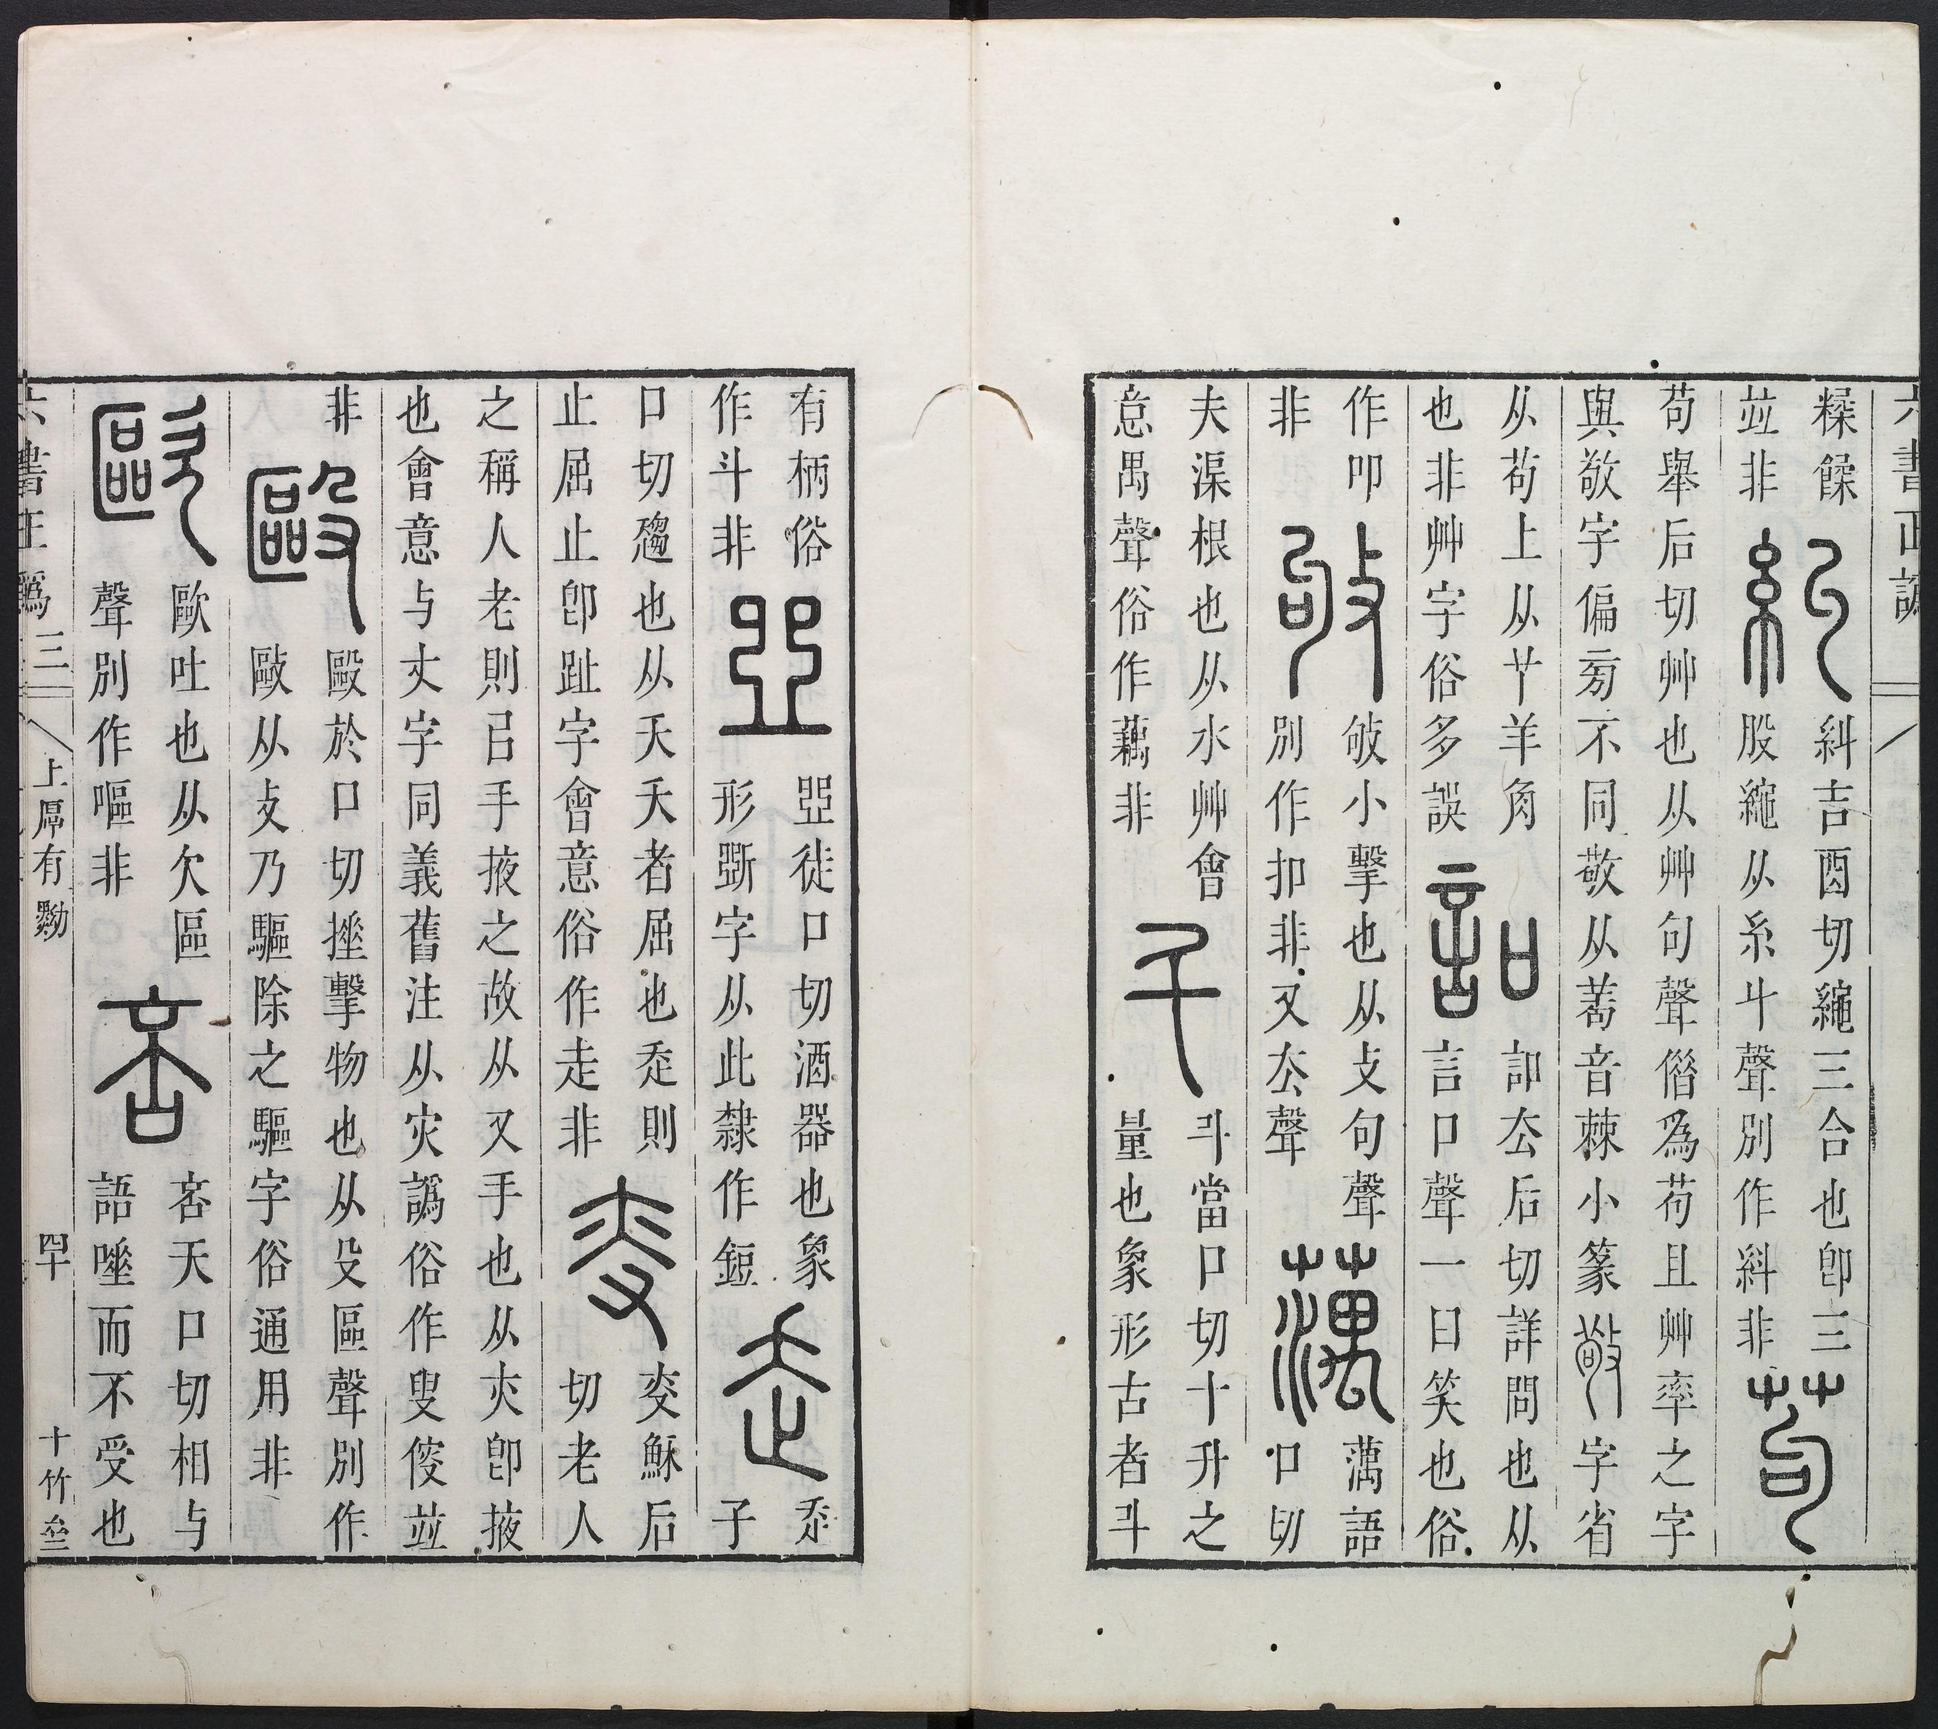 六書正譌
糝餿
並非
糾
糾吉酉切繩三合也卽三
股繩从糸丩聲別作糾非
苟
苟舉后切艸也从艸句聲僭爲苟且艸率之字
與敬字偏旁不同敬从茍音棘小篆敬字省
从茍上从𦍌羊角
也非艸字俗多誤
訆
訆去后切詳問也从
言口聲一曰笑也俗
作叩
非
敂
敂小擊也从攴句聲
別作扣非又去聲
蕅
蕅語
口切
夫渠根也从水艸會
意禺聲俗作藕非
斗
斗當口切十升之
量也象形古者斗
有柄俗
作斗非
䀇
䀇徒口切酒器也象
形斲字从此隸作鋀
走
走子
口切趨也从夭夭者屈也走則
止屈止卽趾字會意俗作走非
叜
叜穌后
切老人
之稱人老則㠯手掖之故从又手也从亦卽掖
也會意与丈字同義舊注从灾譌俗作叟傁並
非
毆
毆於口切捶擊物也从殳區聲別作
敺从攴乃驅除之驅字俗通用非
歐
歐吐也从欠區
聲別作嘔非
咅
咅天口切相与
語唾而不受也
六書正譌 三
上聲有黝
四十
十竹齋